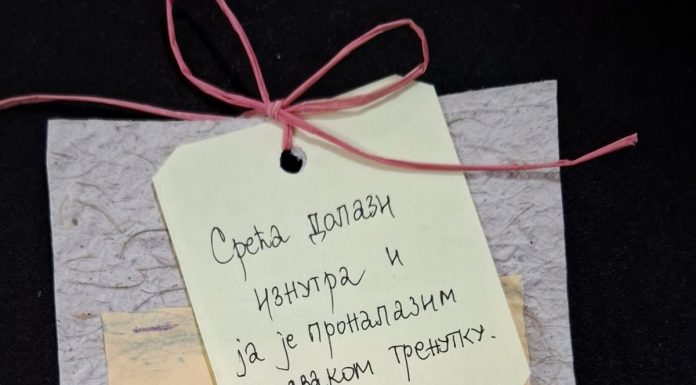 Срећа долази
изнутра и
ја је проналазим
сваком тренутку.